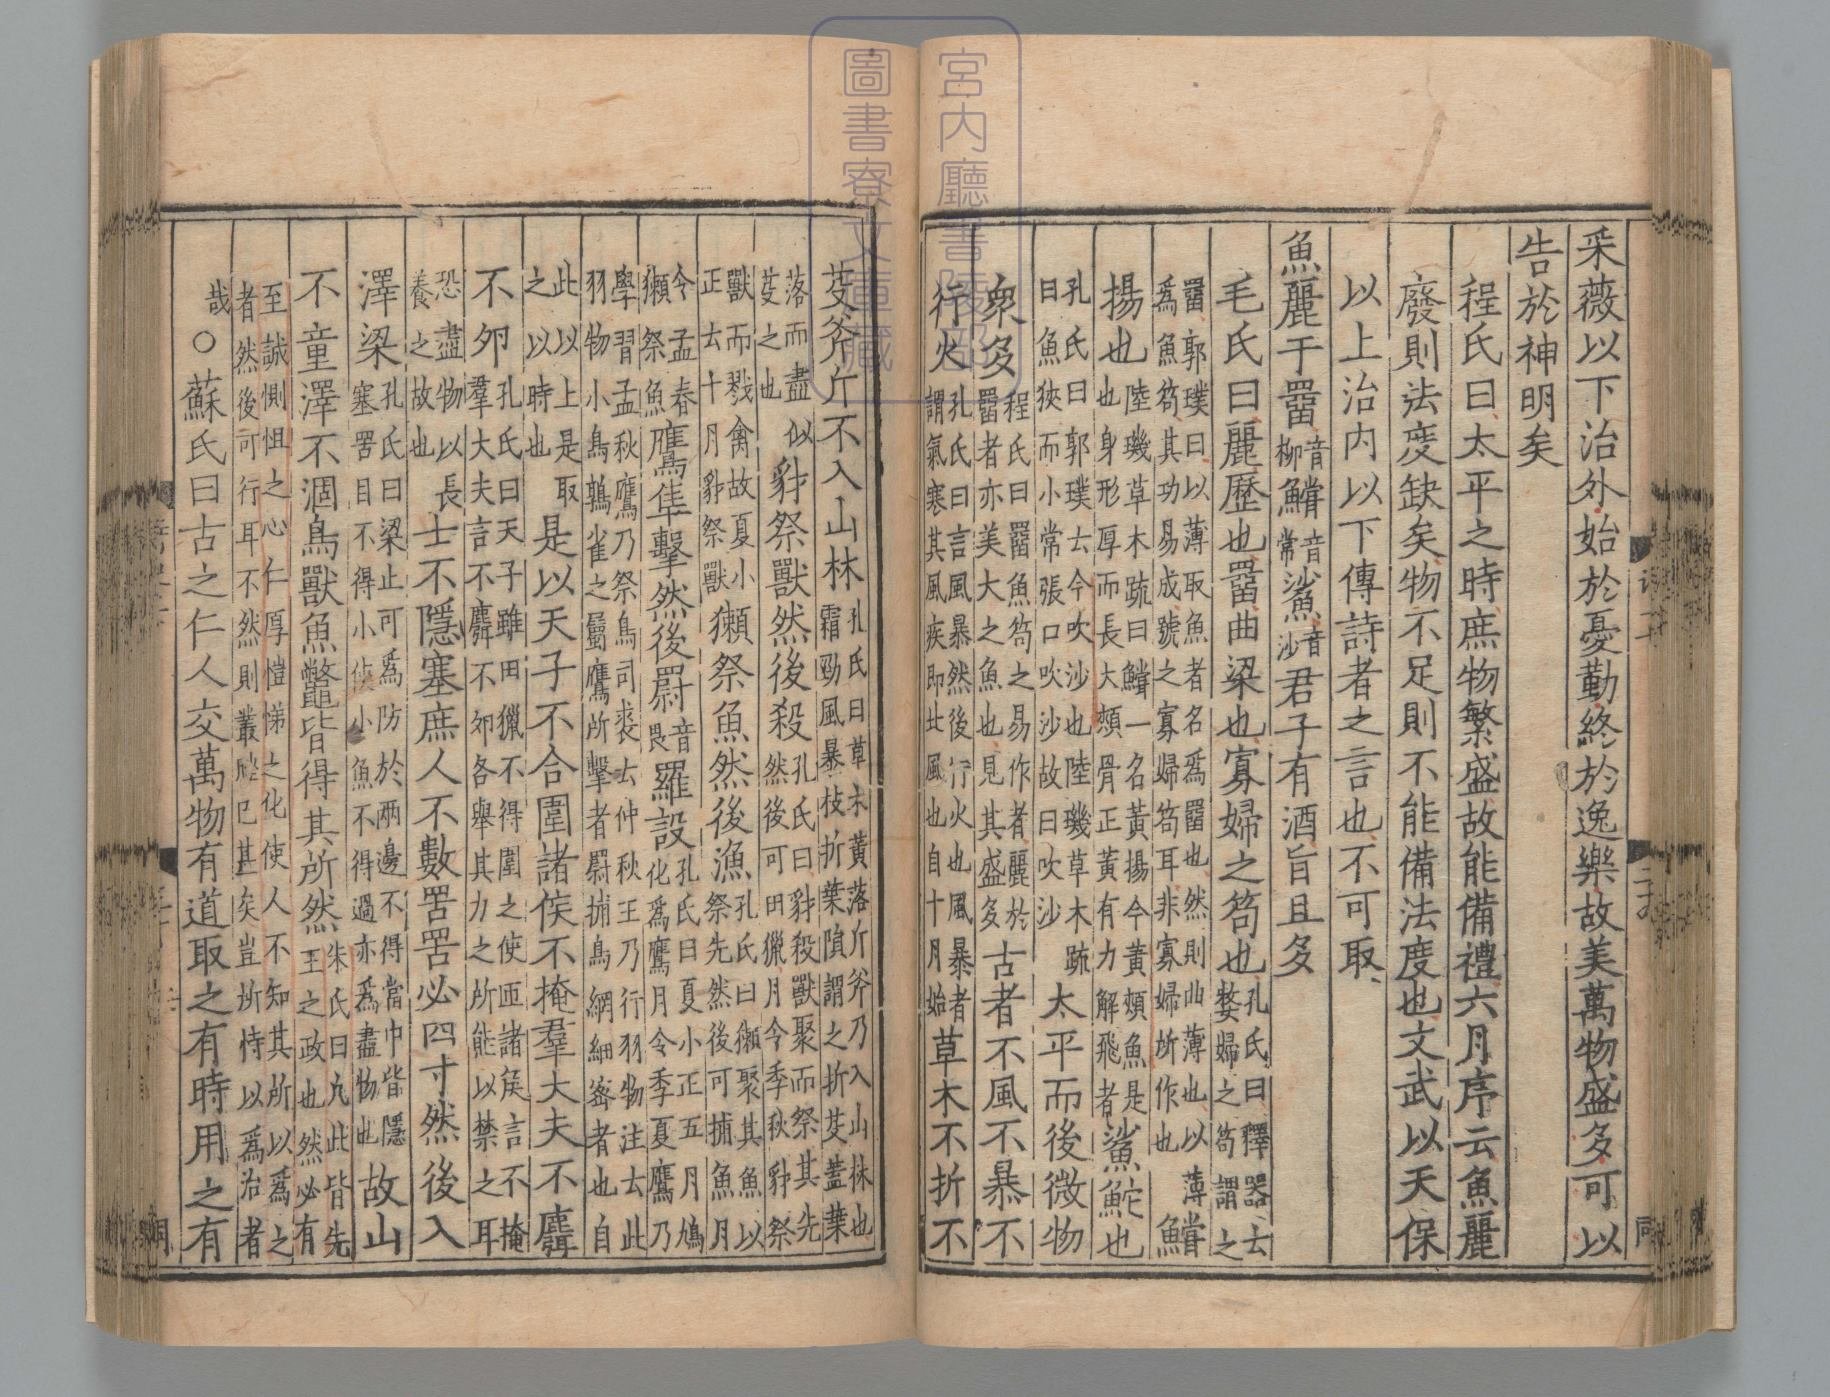 采薇以下治外始於憂勤終於逸樂故美萬物盛多可以
告於神明矣
程氏曰太平之時庶物繁盛故能備禮六月序云魚麗
廢則法度缺矣物不足則不能備法度也文武以天保
以上治内以下傳詩者之言也不可取
魚麗于罶音柳鱨音常鯊音沙君子有酒旨且多
毛氏曰麗歷也罶曲梁也寡婦之笱也孔氏曰釋器云
嫠婦之笱謂之
罶郭璞曰以薄取魚者名為罶也然則曲薄也以薄
為魚笱其功易成號之寡婦笱耳非寡婦所作也鱨
揚也陸璣草木疏曰鱨一名黃揚今黃頰魚是
也身形厚而長大頰骨正黃有力解飛者鯊鮀也
孔氏曰郭璞云今吹沙也陸璣草木疏
曰魚狹而小常張口吹沙故曰吹沙太平而後微物
衆多程氏曰罶魚笱之易作者麗於
罶者亦美大之魚也見其盛多古者不風不暴不
行火孔氏曰言風暴然後行火也風暴者
謂氣寒其風疾即北風也自十月始草木不折不
芟斧斤不入山林孔氏曰草木黃落斤斧乃入山林也
霜勁風暴枝折葉隕謂之折芟蓋葉
落而盡
芟之也似豺祭獸然後殺孔氏曰豺殺獸聚而祭其先
然後可田獵月令季秋豺祭
獸而戮禽故夏小
正云十月豺祭獸獺祭魚然後漁孔氏曰獺聚其魚以
祭先然後可捕魚月
令孟春
獺祭魚鷹隼擊然後罻音畏羅設孔氏曰夏小正五月鳩
化為鷹月令季夏鷹乃
學習孟秋鷹乃祭鳥司裘云仲秋王乃行羽物注云此
羽物小鳥鶉雀之屬鷹所擊者罻捕鳥網細密者也自
此以上是取
之以時也是以天子不合圍諸侯不掩羣大夫不麛
不夘孔氏曰天子雖田獵不得圍之使匝諸侯言不掩
羣大夫言不麛不夘各舉其力之所能以禁之耳
恐盡物以長
養之故也士不隱塞庶人不數罟罟必四寸然後入
澤梁孔氏曰梁止可為防於兩邊不得當中皆隱
塞罟目不得小使小魚不得過亦為盡物也故山
不童澤不涸鳥獸魚鼈皆得其所然朱氏曰凡此皆先
王之政也然必有
至誠惻怛之心仁厚愷悌之化使人不知其所以為之
者然後可行耳不然則叢脞已甚矣豈所恃以為治者
哉○蘇氏曰古之仁人交萬物有道取之有時用之有
宮内廳書陵部
圖書寮文庫藏